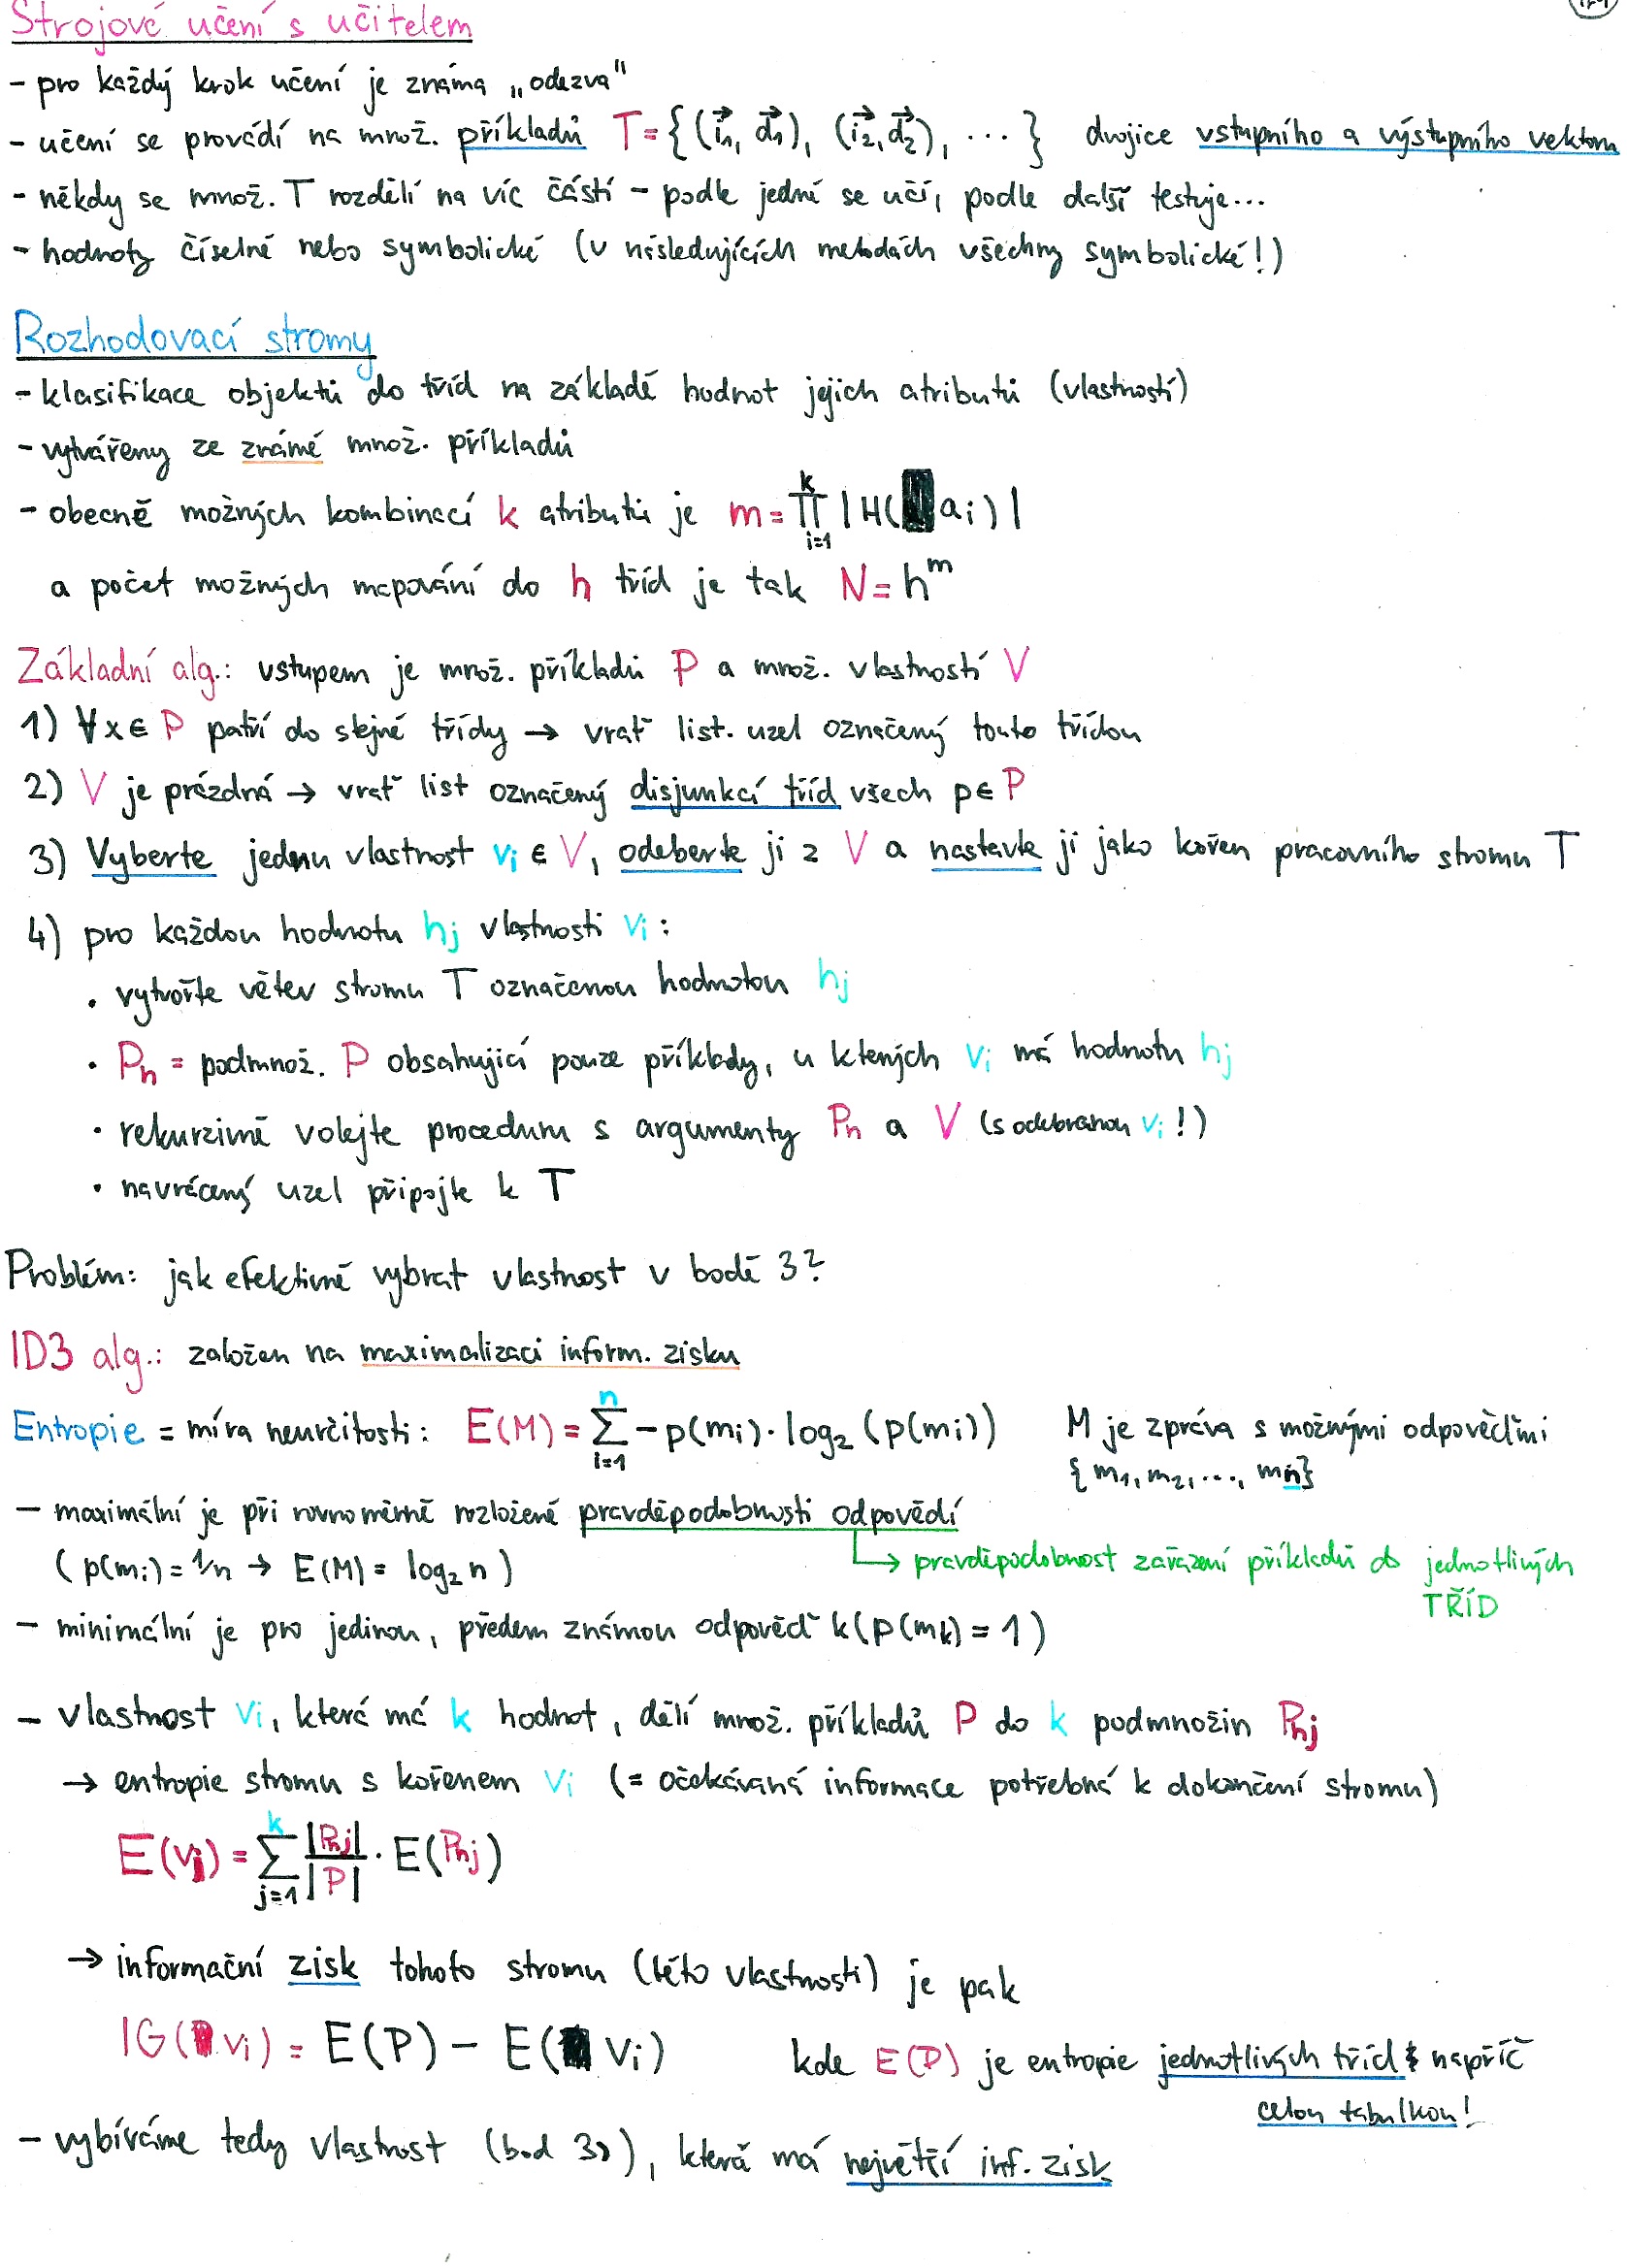 Strojové učení s učitelem
- pro každý krok učení je známa „odezva"
- učení se provádí na množ. příkladů T = {(i⃗₁, d⃗₁), (i⃗₂, d⃗₂), ...} dvojice vstupního a výstupního vektoru
- někdy se množ. T rozdělí na víc částí - podle jedné se učí, podle další testuje...
- hodnoty číselné nebo symbolické (v následujících metodách všechny symbolické!)
Rozhodovací stromy
- klasifikace objektů do tříd na základě hodnot jejich atributů (vlastností)
- vytvářeny ze známé množ. příkladů
- obecně možných kombinací k atributů je m = ∏ᵢ₌₁ᵏ |H(aᵢ)|
a počet možných mapování do h tříd je tak N = hᵐ
Základní alg.: vstupem je množ. příkladů P a množ. vlastností V
1) ∀x ∈ P patří do stejné třídy → vrať list. uzel označený touto třídou
2) V je prázdná → vrať list označený disjunkcí tříd všech p ∈ P
3) Vyberte jednu vlastnost vᵢ ∈ V, odeberte ji z V a nastavte ji jako kořen pracovního stromu T
4) pro každou hodnotu hⱼ vlastnosti vᵢ:
• vytvořte větev stromu T označenou hodnotou hⱼ
• Pₕ = podmnož. P obsahující pouze příklady, u kterých vᵢ má hodnotu hⱼ
• rekurzivně volejte proceduru s argumenty Pₕ a V (s odebranou vᵢ!)
• navrácený uzel připojte k T
Problém: jak efektivně vybrat vlastnost v bodě 3?
ID3 alg.: založen na maximalizaci inform. zisku
Entropie = míra neurčitosti: E(M) = ∑ᵢ₌₁ⁿ -p(mᵢ) · log₂(p(mᵢ)) M je zpráva s možnými odpověďmi
{m₁, m₂, ..., mₙ}
- maximální je při rovnoměrně rozložené pravděpodobnosti odpovědí
(p(mᵢ) = 1/n → E(M) = log₂ n) ↳ pravděpodobnost zařazení příkladů do jednotlivých
TŘÍD
- minimální je pro jedinou, předem známou odpověď k (p(mₖ) = 1)
- vlastnost vᵢ, která má k hodnot, dělí množ. příkladů P do k podmnožin Pₕⱼ
→ entropie stromu s kořenem vᵢ (= očekávaná informace potřebná k dokončení stromu)
E(vᵢ) = ∑ⱼ₌₁ᵏ |Pₕⱼ|/|P| · E(Pₕⱼ)
→ informační zisk tohoto stromu (této vlastnosti) je pak
IG(vᵢ) = E(P) - E(vᵢ) kde E(P) je entropie jednotlivých tříd napříč
celou tabulkou!
- vybíráme tedy vlastnost (bod 3)), která má největší inf. zisk